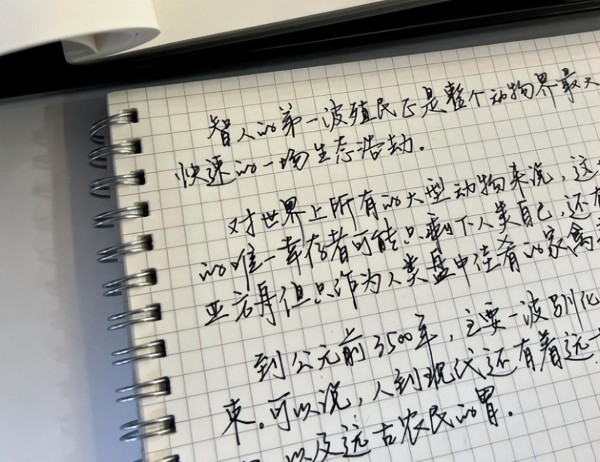 智人的第一波殖民正是整个动物界最大
快速的一场生态浩劫.
对世界上所有的大型动物来说,这
的唯一幸存者可能只剩下人类自己,还有
亚舟再但只作为人类盘中佳肴的家禽
到公元前3500年,主要一波驯化
束.可以说,人到现代还有着远古
以及远古农民的胃.